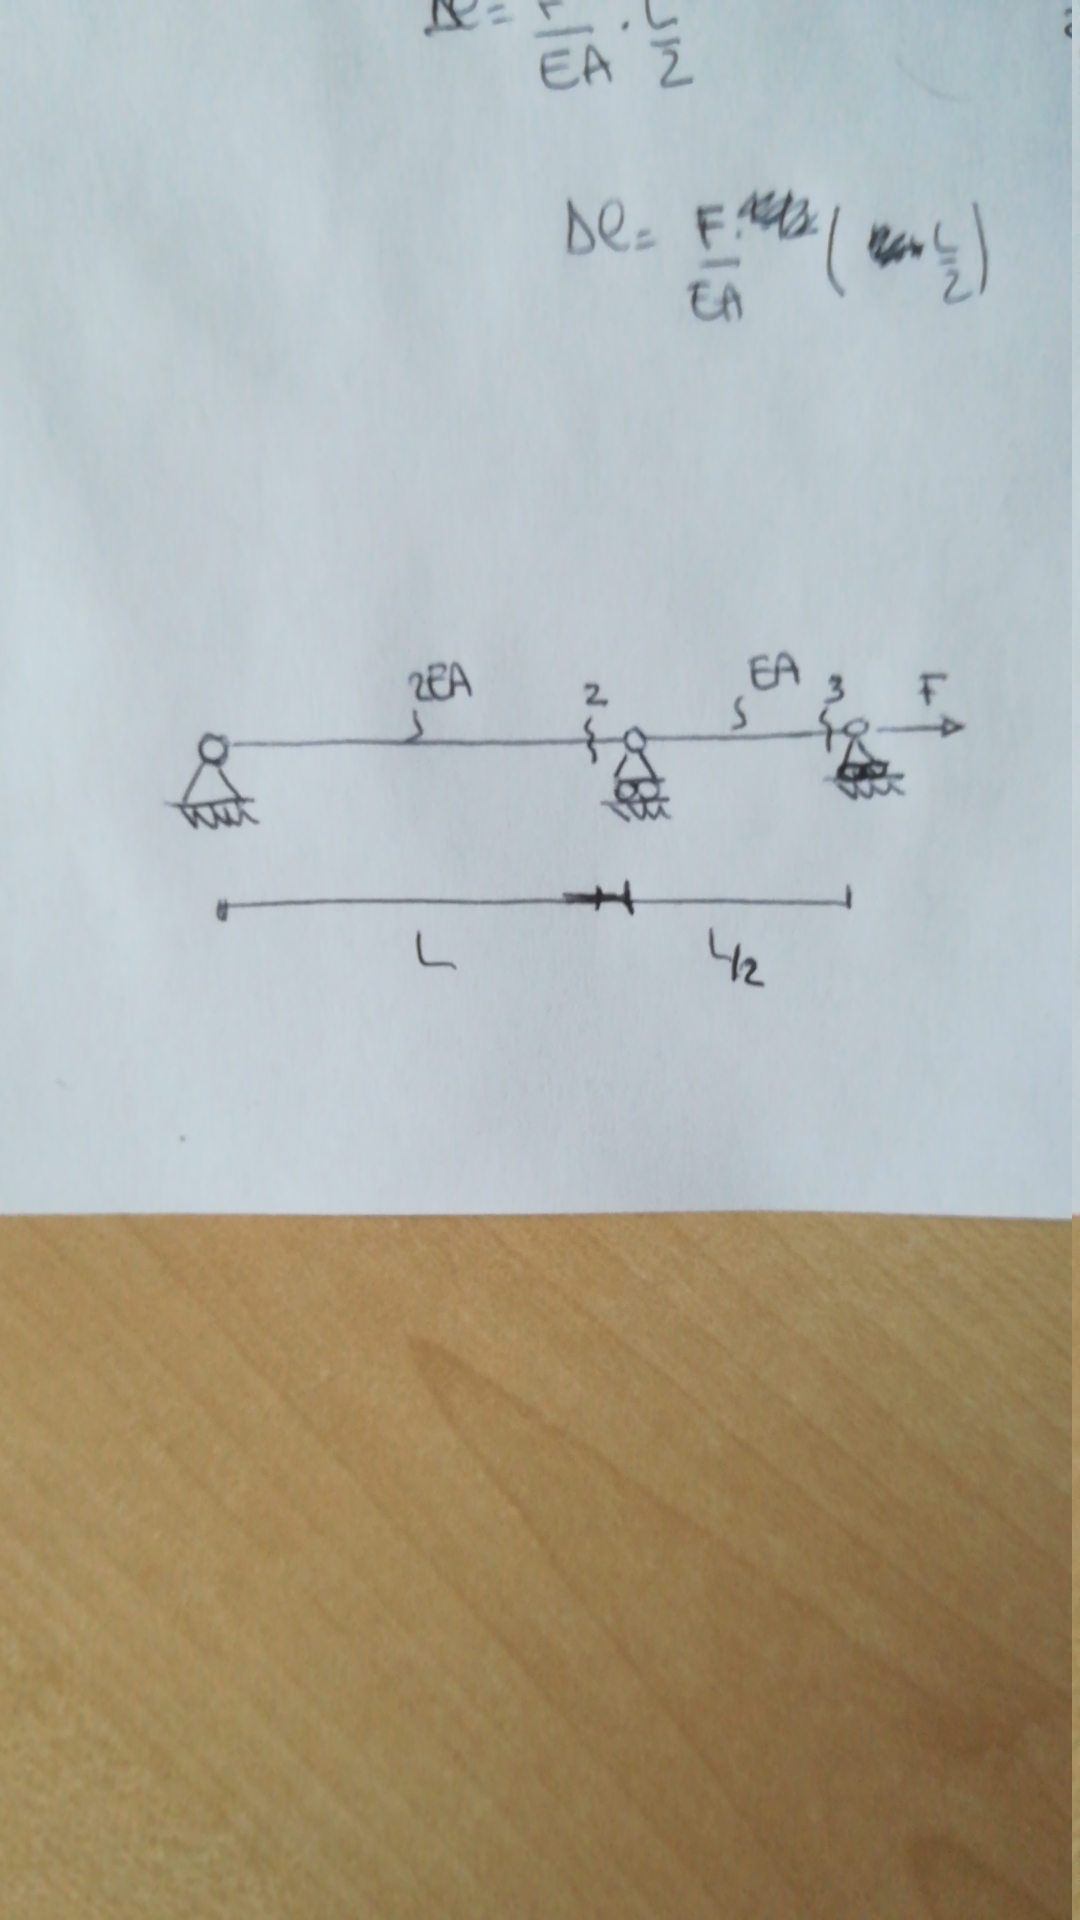 Δℓ = F/EA · L/2
Δℓ = F/EA ( L/2 )
2EA 2 EA 3 F
L L/2